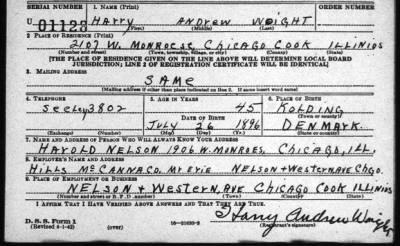 SERIAL NUMBER 1. NAME (Print) ORDER NUMBER
U 01123 HARRY ANDREW WEIGHT
(First) (Middle) (Last)
2. PLACE OF RESIDENCE (Print)
2107 W. MONROE ST, CHICAGO COOK ILLINIOS
(Number and street) (Town, township, village, or city) (County) (State)
[THE PLACE OF RESIDENCE GIVEN ON THE LINE ABOVE WILL DETERMINE LOCAL BOARD
JURISDICTION; LINE 2 OF REGISTRATION CERTIFICATE WILL BE IDENTICAL]
3. MAILING ADDRESS
SAME
[Mailing address if other than place indicated on line 2. If same insert word same]
4. TELEPHONE 5. AGE IN YEARS 6. PLACE OF BIRTH
SEELEY 3802 45 KOLDING
DATE OF BIRTH (Town or county)
JULY 26 1896 DENMARK.
(Exchange) (Number) (Mo.) (Day) (Yr.) (State or country)
7. NAME AND ADDRESS OF PERSON WHO WILL ALWAYS KNOW YOUR ADDRESS
HAROLD NELSON 1906 W. MONROE S, CHICAGO, ILL.
8. EMPLOYER'S NAME AND ADDRESS
HILLS MCCANNA CO. NELSON + WESTERN AVE CHGO.
9. PLACE OF EMPLOYMENT OR BUSINESS
NELSON + WESTERN, AVE CHICAGO COOK ILLINIOS
(Number and street or R. F. D. number) (Town) (County) (State)
I AFFIRM THAT I HAVE VERIFIED ABOVE ANSWERS AND THAT THEY ARE TRUE.
D. S. S. Form 1 Harry Andrew Weight
(Revised 4-1-42) (over) 16-21630-2 (Registrant's signature)